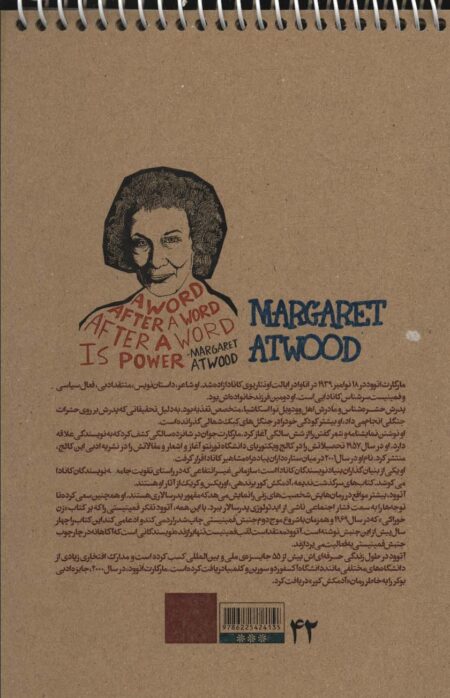 A WORD
AFTER A WORD
AFTER A WORD
IS POWER
-MARGARET
ATWOOD
MARGARET
ATWOOD
مارگارت اتوود در ۱۸ نوامبر ۱۹۳۹ در اتاوا در ایالت اونتاریوی کانادا زاده شد. او شاعر، داستان‌نویس، منتقد ادبی، فعال سیاسی
و فمینیست سرشناس کانادایی است. او دومین فرزند خانواده‌اش بود.
پدرش حشره‌شناس و مادرش اهل وودویل نوا اسکاشیا، متخصص تغذیه بود. به دلیل تحقیقاتی که پدرش بر روی حشرات
جنگلی انجام می‌داد، او بیشتر کودکی خود را در جنگل‌های کبک شمالی گذرانده است.
او نوشتن نمایشنامه و شعر گفتن را از شش سالگی آغاز کرد. مارگارت جوان در شانزده سالگی کشف کرد که به نویسندگی علاقه
دارد. او در سال ۱۹۵۷ تحصیلاتش را در کالج ویکتوریای دانشگاه تورنتو آغاز و اشعار و مقالاتش را در نشریه ادبی این کالج،
منتشر کرد. نام او در سال ۲۰۰۱ در میان ستاره‌داران پیاده‌راه مشاهیر کانادا قرار گرفت.
او یکی از بنیان‌گذاران بنیاد نویسندگان کانادا است؛ سازمانی غیرانتفاعی که در راستای تقویت جامعه نویسندگان کانادا
می‌کوشد. کتاب‌های سرگذشت ندیمه، آدمکش کور برنده‌ی، اوریکس و کریک از آثار او هستند.
آتوود، بیشتر مواقع در رمان‌هایش شخصیت‌های زنی را نمایش می‌دهد که مقهور پدرسالاری هستند. او همچنین سعی کرده تا
توجه‌ها را به سمت فشار اجتماعی ناشی از ایدئولوژی پدرسالار ببرد. با این همه، آتوود تفکر فمینیستی را که بر کتاب، زن
خوراکی که در سال ۱۹۶۹ و همزمان با شروع موج دوم جنبش فمینیستی چاپ شد رد می‌کند و ادعا می‌کند این کتاب را چهار
سال پیش از این جنبش نوشته است. آتوود معتقد است لقب فمینیست تنها برازنده نویسندگانی است که آگاهانه در چارچوب
جنبش فمینیستی به فعالیت می‌پردازند.
آتوود در طول زندگی حرفه‌ای‌اش بیش از ۵۵ جایزه‌ی ملی و بین‌المللی کسب کرده است و مدارک افتخاری زیادی از
دانشگاه‌های مختلفی مانند دانشگاه آکسفورد و سوربن و کلمبیا دریافت کرده است. مارگارت اتوود، در سال ۲۰۰۰، جایزه ادبی
بوکر را به خاطر رمان «آدمکش کور» دریافت کرد.
9786225424135
۴۲